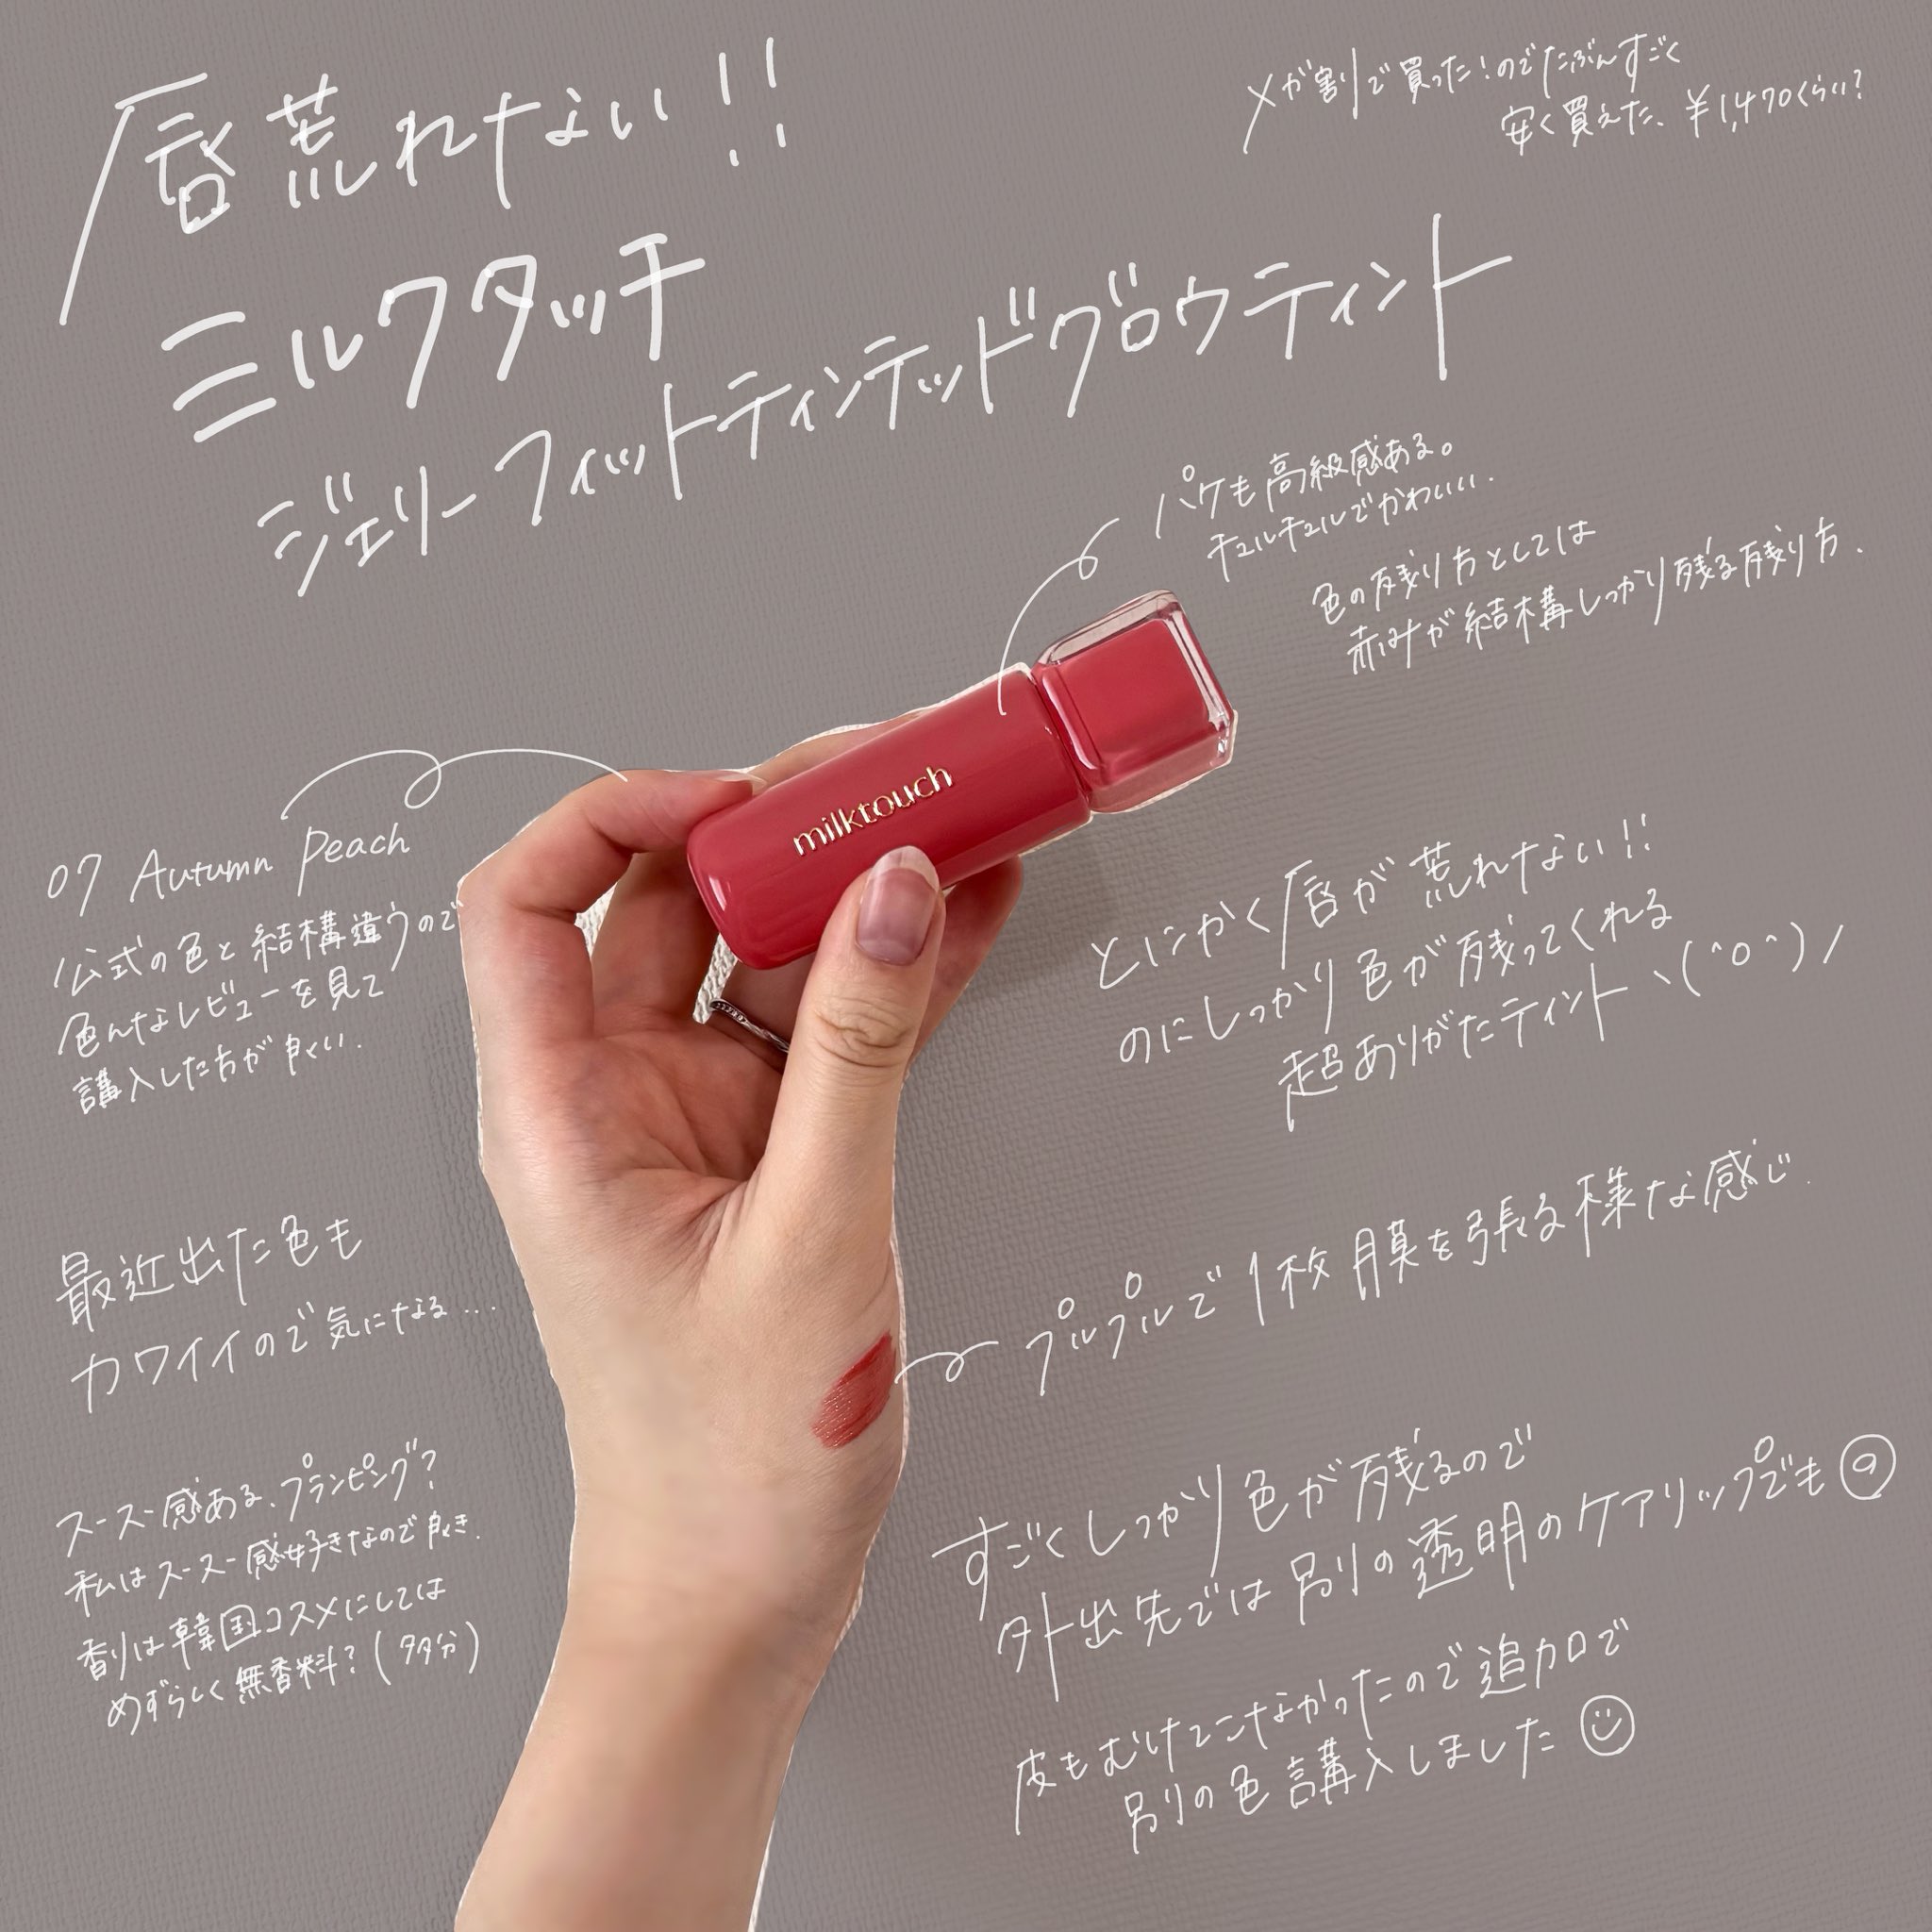 唇荒れない!!
ミルクタッチ
ジェリーフィットティンテッドグロウティント
メガ割で買った!のでたぶんすごく
安く買えた、¥1,470くらい?
パケも高級感ある。
チュルチュルでかわいい.
色の残り方としては
赤みが結構しっかり残る残り方.
milktouch
07 Autumn Peach
公式の色と結構違うので
色んなレビューを見て
講入した方が良い.
とにかく唇が荒れない!!
のにしっかり色が残ってくれる
超ありがたティント ヽ(^o^)/
最近出た色も
カワイイので気になる...
プルプルで1枚膜を張る様な感じ.
スースー感ある.プランピング?
私はスースー感好きなので良き.
香りは韓国コスメにしては
めずらしく無香料?(多分)
すごくしっかり色が残るので
外出先では別の透明のケアリップでも
皮もむけてこなかったので追加で
別の色講入しました